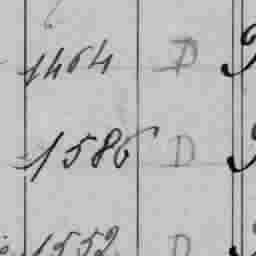 1464 D
1586 D
1552 D